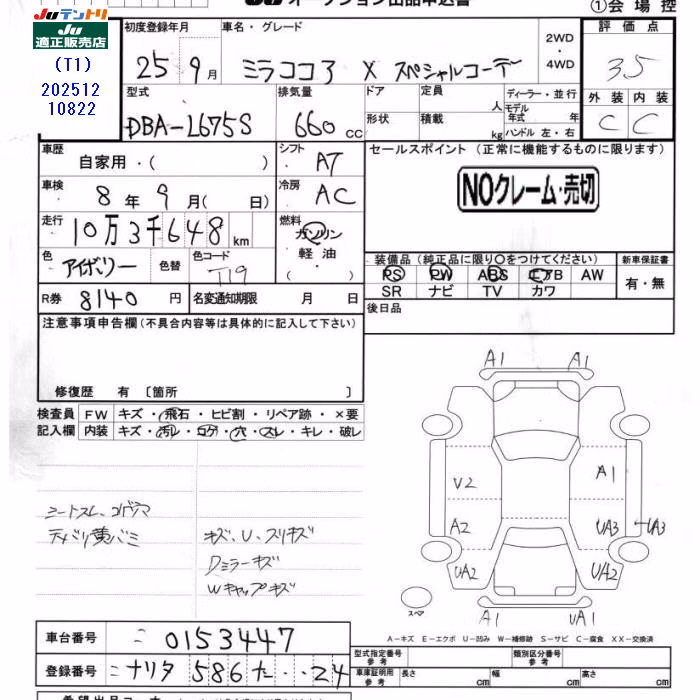 Juテントリ
Ju
適正販売店
(T1)
202512
10822
オークション出品申込書
①会場控
初度登録年月
25年9月
車名・グレード
ミラココア X スペシャルコーデ
2WD・4WD
評価点
3.5
外装 内装
C C
型式
DBA-L675S
排気量
660 cc
ドア
形状
定員 人
積載 kg
ディーラー・並行
モデル年式 年式
ハンドル 左・右
車歴
自家用・( )
シフト
AT
車検
8年9月(日)
冷房
AC
走行
10万3千648km
燃料
ガソリン
軽油
( )
色
アイボリー
色替
色コード
T19
R券
8140円
名変通知期限 月 日
セールスポイント (正常に機能するものに限ります)
NOクレーム・売切
装備品(純正品に限り○をつけてください)
PS PW ABS エアB AW
SR ナビ TV カワ
新車保証書
有・無
後日品
注意事項申告欄(不具合内容等は具体的に記入して下さい)
修復歴 有〔箇所 〕
検査員記入欄
FW キズ・飛石・ヒビ割・リペア跡・×要
内装 キズ・汚れ・コゲ・穴・スレ・キレ・破レ
シートスレ、コゲアナ
キズ、U、スリキズ
Dミラーキズ
Wキャップキズ
A1 A1
V2 A1
A2 UA3 UA3
UA2 UA2
スペア
A1 UA1
A-キズ E-エクボ U-凹み W-補修跡 S-サビ C-腐食 XX-交換済
車台番号
0153447
登録番号
ナリタ 586 た ・・24
型式指定番号 参考
類別区分番号 参考
車庫証明用 参考
長さ cm
幅 cm
高さ cm
希望出品コーナー